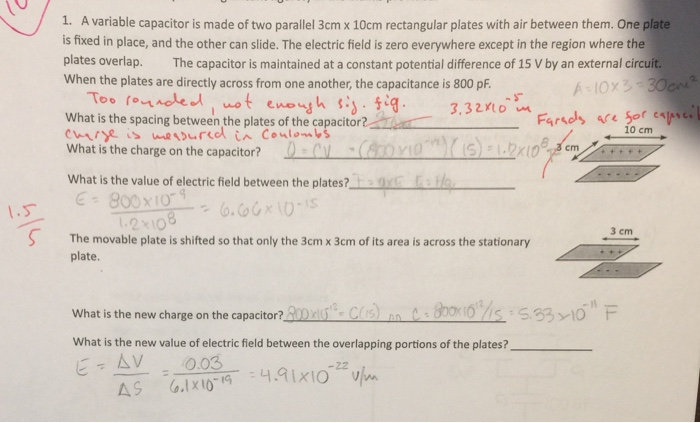 1. A variable capacitor is made of two parallel 3cm x 10cm rectangular plates with air between them. One plate
is fixed in place, and the other can slide. The electric field is zero everywhere except in the region where the
plates overlap. The capacitor is maintained at a constant potential difference of 15 V by an external circuit.
When the plates are directly across from one another, the capacitance is 800 pF.
A=10x3=30cm²
Too rounded, not enough sig. fig. 3.32x10⁻⁵m
What is the spacing between the plates of the capacitor?
Farads are for
charge is measured in Coulombs
10 cm
What is the charge on the capacitor? Q=CV = (800x10⁻¹²)(15)=1.2x10⁸
3 cm
What is the value of electric field between the plates?
E= 800x10⁻⁹/1.2x10⁸ = 6.66x10⁻¹⁵
1.5/5
3 cm
The movable plate is shifted so that only the 3cm x 3cm of its area is across the stationary
plate.
What is the new charge on the capacitor? 800x10¹²=C(15) C=800x10¹²/15=5.33x10⁻¹¹ F
What is the new value of electric field between the overlapping portions of the plates?
E = ΔV/ΔS = 0.03/6.1x10⁻¹⁹ = 4.91x10⁻²² V/m